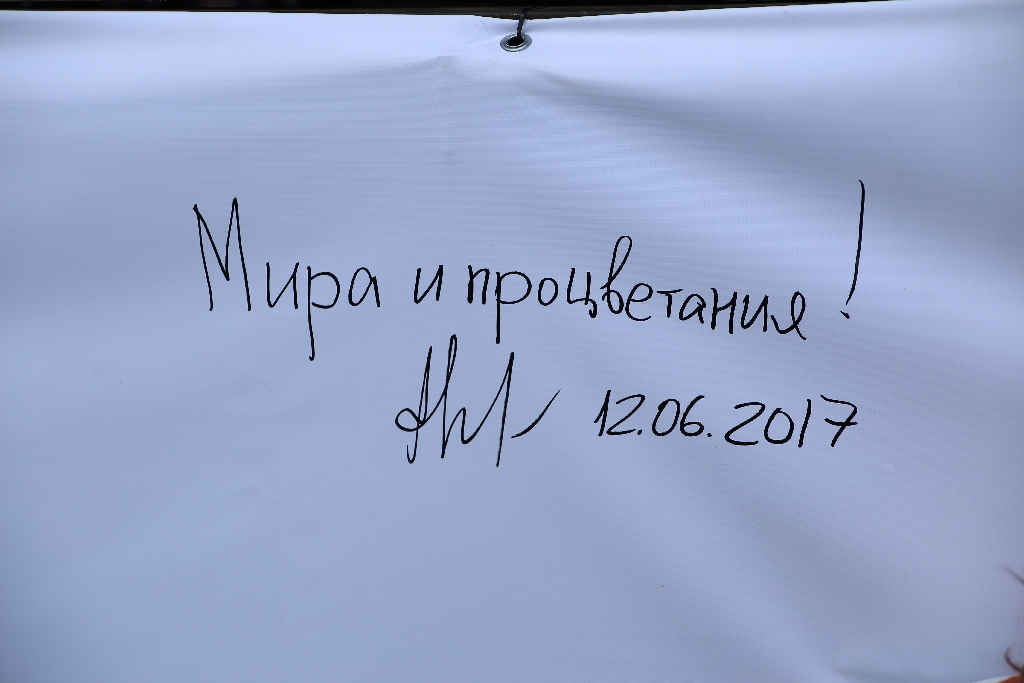 Мира и процветания!
12.06.2017